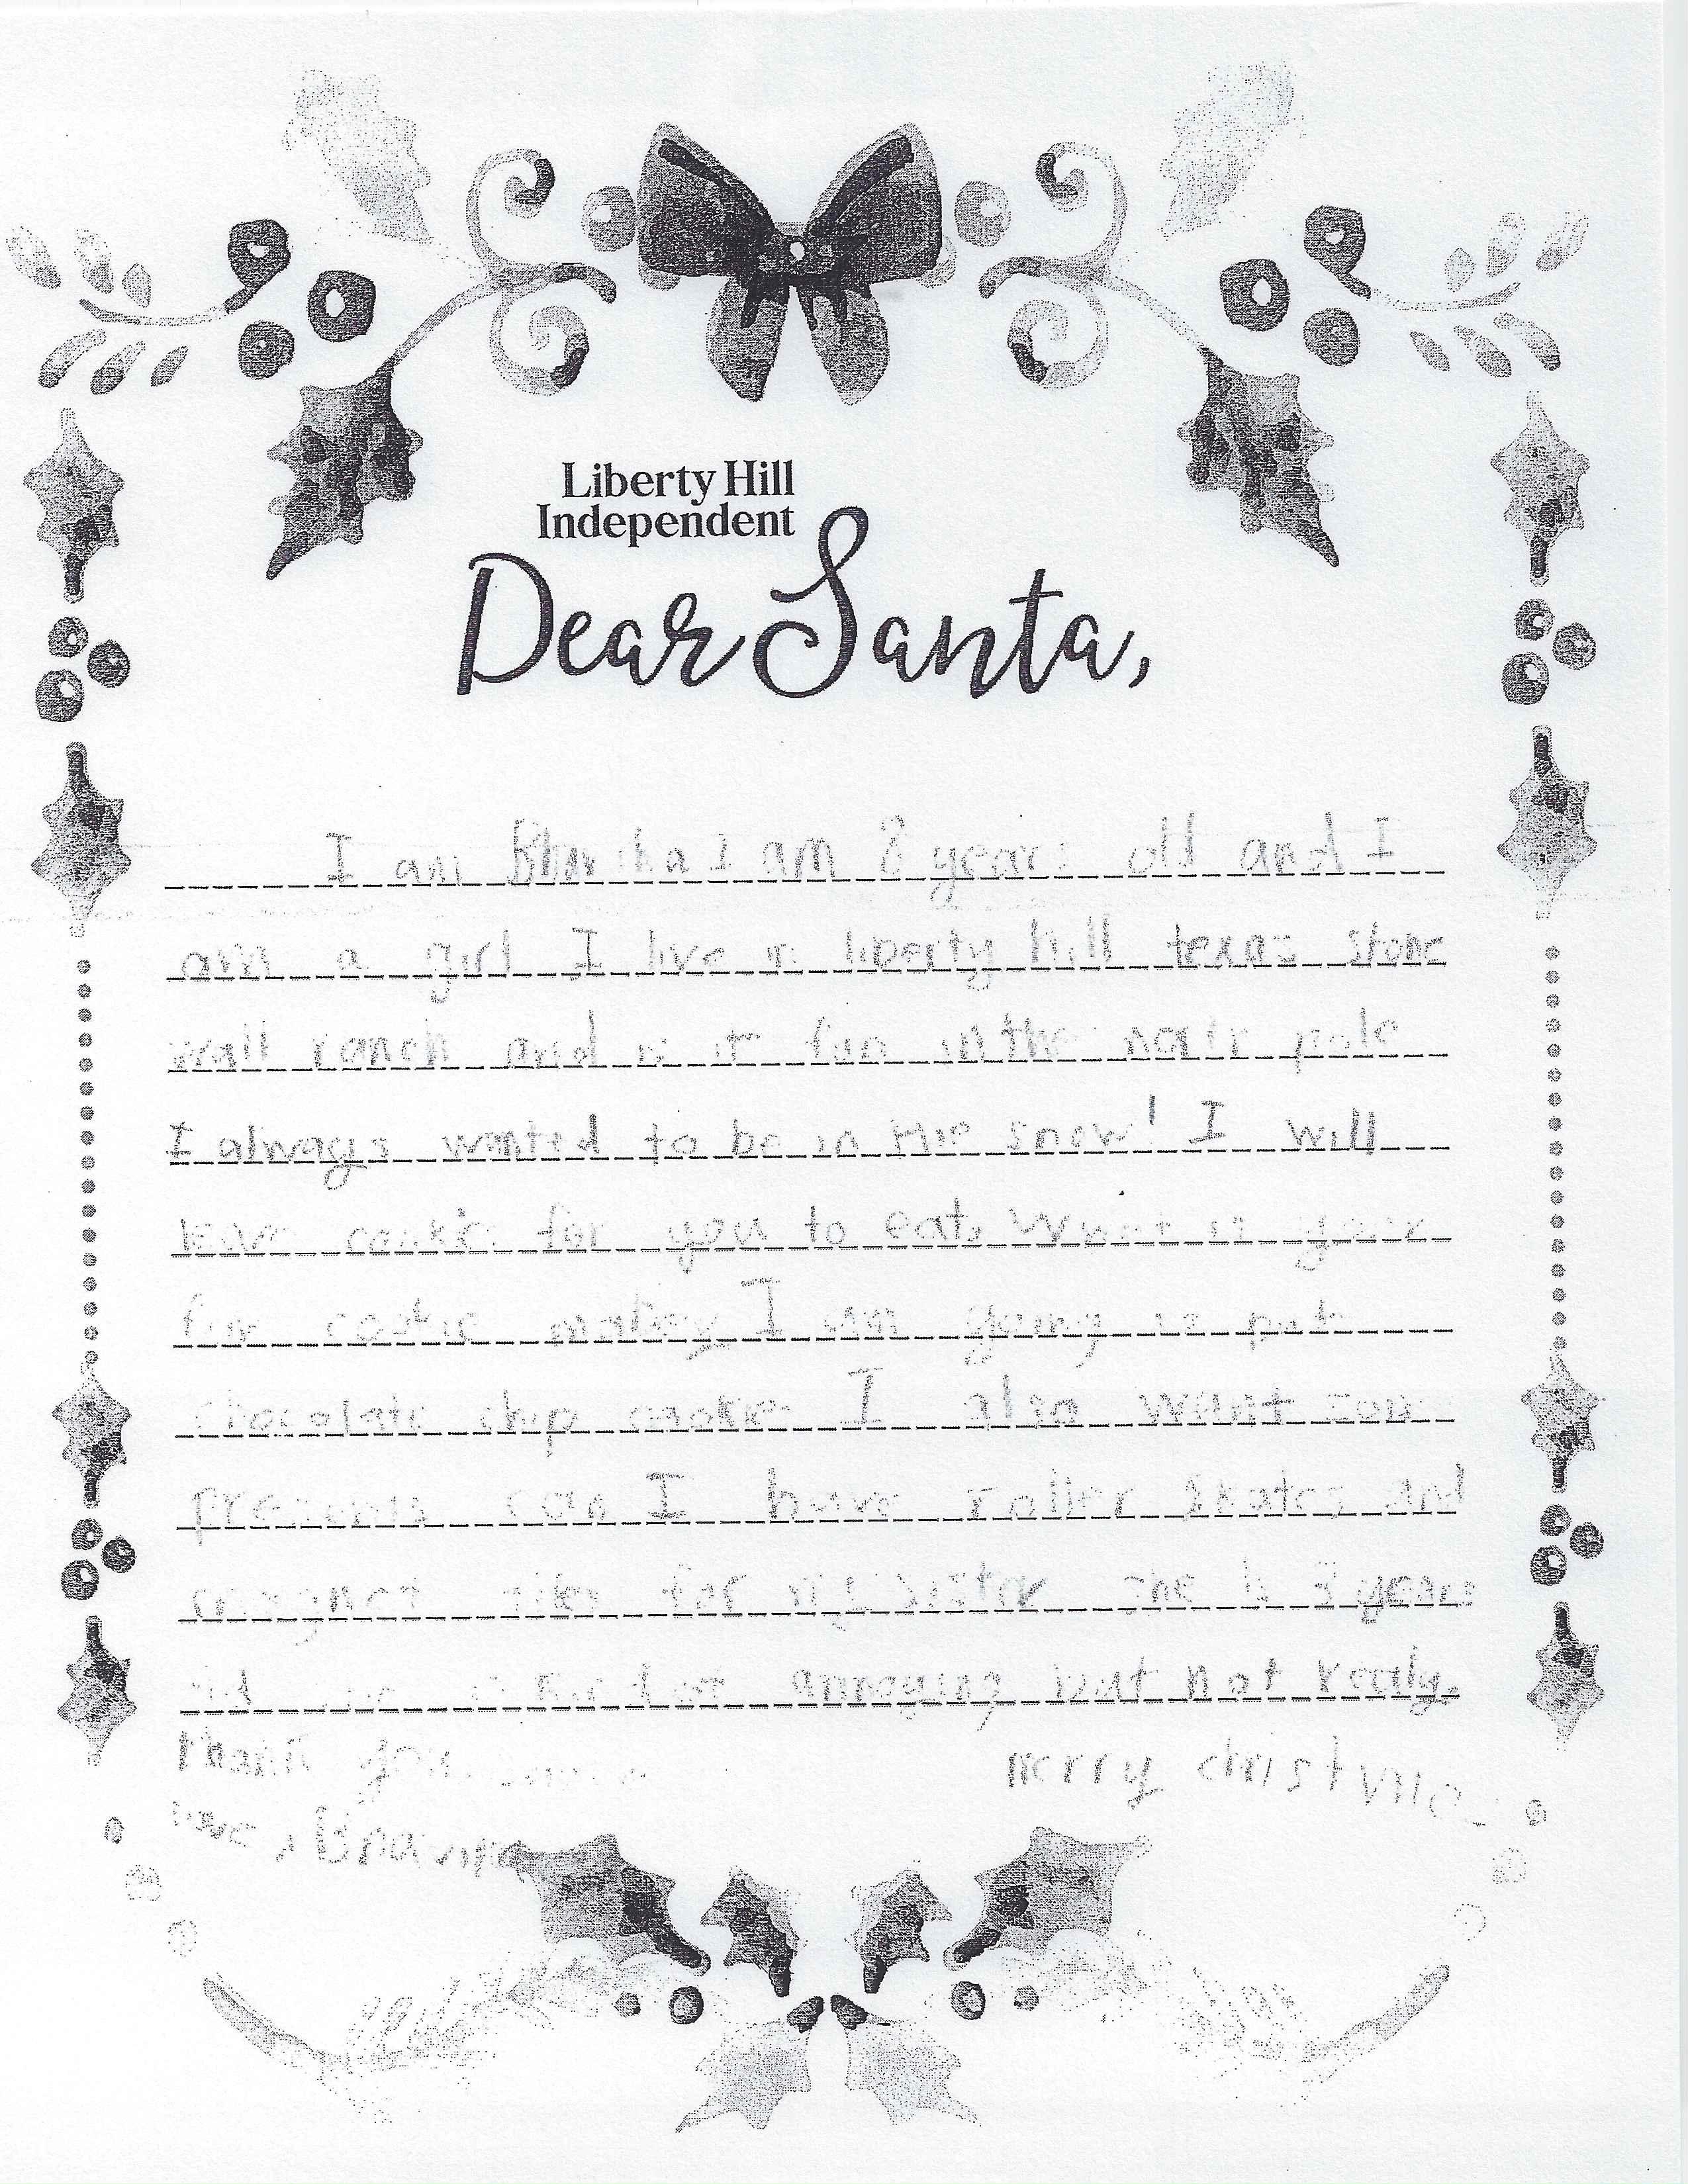 Liberty Hill
Independent
Dear Santa,
I am I am 8 years old and I
am a girl I live in liberty hill texas stone
wall ranch and is it fun in the pole
I always wanted to be in the snow! I will
leave cookie for you to eat. What is your
fav cookie I am going to put
chocolate chip cookie I also want some
presents can I have roller skates and
magnet tiles for my sister she is 3 years
old she is annoying but not really.
thank you merry christmas
love,